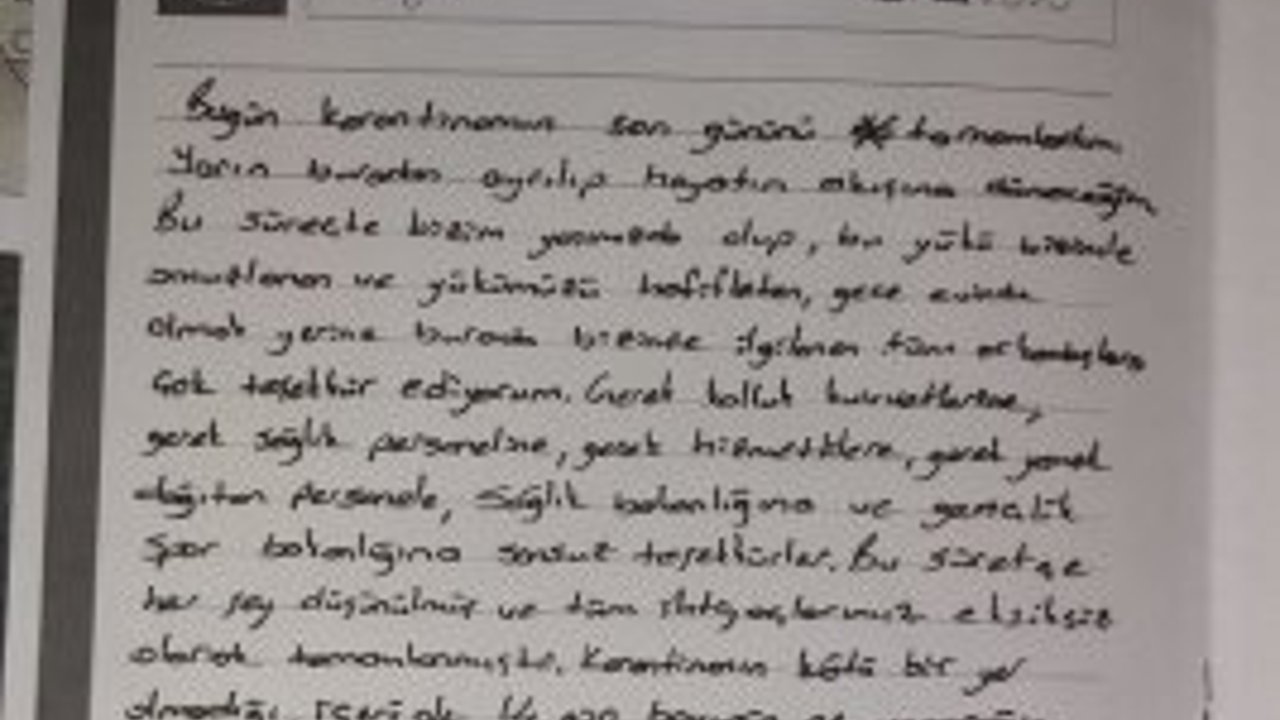 Bugün karantinamın son gününü tamamladım.
Yarın buradan ayrılıp hayatın akışına döneceğim.
Bu süreçte bizim yanımızda olup, bu yükü bizimle
omuzlanan ve yükümüzü hafifleten, gece evinde
olmak yerine burada bizimle ilgilenen tüm arkadaşlara
çok teşekkür ediyorum. Gerek kolluk kuvvetlerine,
gerek sağlık personeline, gerek hizmetlilere, gerek yemek
dağıtan personele, Sağlık bakanlığına ve gençlik
spor bakanlığına sonsuz teşekkürler. Bu süreçte
her şey düşünülmüş ve tüm ihtiyaçlarımız eksiksiz
olarak tamamlanmıştı. Karantinanın kötü bir yer
olmadığı